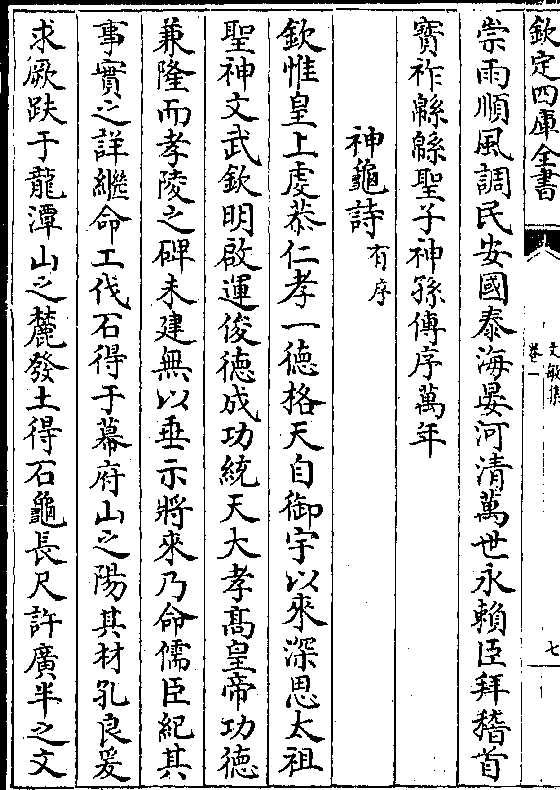 欽定四庫全書
文敏集
卷一
七
崇雨順風調民安國泰海晏河清萬世永賴臣拜稽首
寳祚緜緜聖子神孫傳序萬年
神龜詩有序
欽惟皇上䖍恭仁孝一德格天自御宇以來深思太祖
聖神文武欽明啟運俊德成功統天大孝髙皇帝功德
兼隆而孝陵之碑未建無以垂示將來乃命儒臣紀其
事實之詳繼命工伐石得于幕府山之陽其材孔良爰
求厥趺于龍潭山之麓發土得石龜長尺許廣半之文